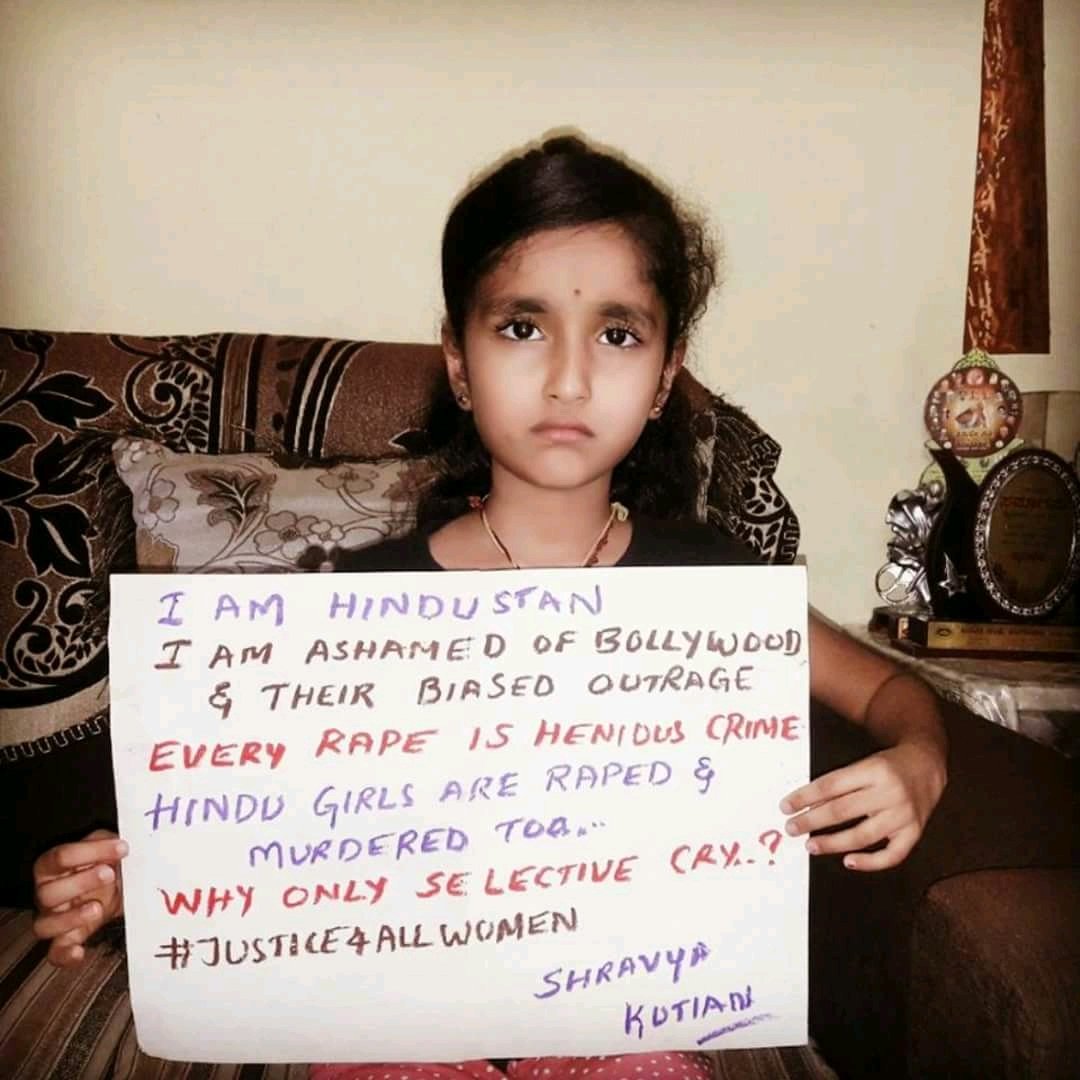 I AM HINDUSTAN
I AM ASHAMED OF BOLLYWOOD
& THEIR BIASED OUTRAGE
EVERY RAPE IS HENIOUS CRIME
HINDU GIRLS ARE RAPED &
MURDERED TOO...
WHY ONLY SELECTIVE CRY..?
#JUSTICE4ALLWOMEN
SHRAVYA
KUTIAN